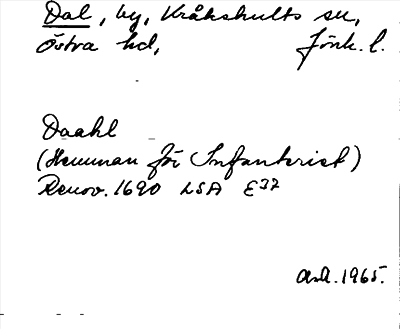 Dal, by, Kråkshults sn,
Östra hd, Jönk. l.
Daahl
(Hemman för Infanterist)
Renov. 1690 LSA E 37
Avd. 1965.